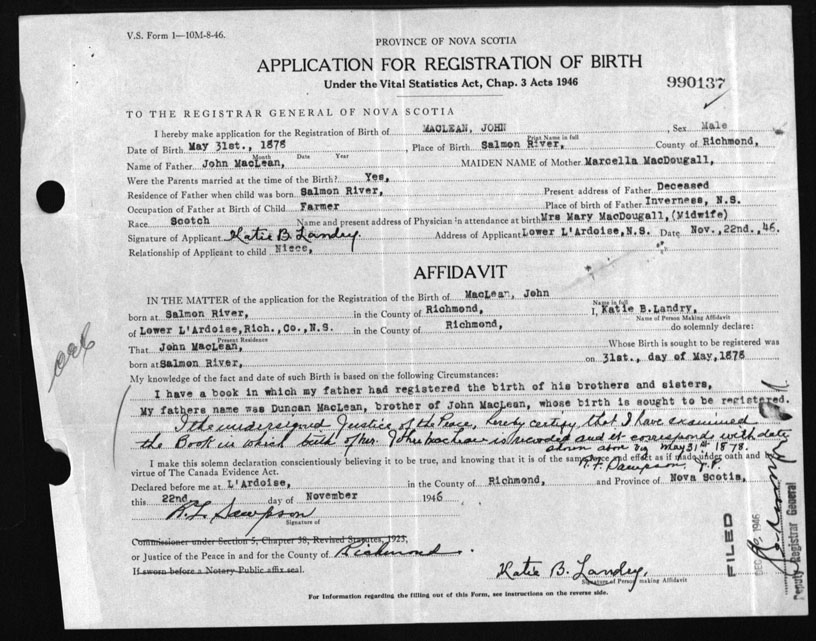 V.S. Form 1—10M-8-46.
PROVINCE OF NOVA SCOTIA
APPLICATION FOR REGISTRATION OF BIRTH
Under the Vital Statistics Act, Chap. 3 Acts 1946
990137
TO THE REGISTRAR GENERAL OF NOVA SCOTIA
I hereby make application for the Registration of Birth of MACLEAN, JOHN , Sex Male
Print Name in full
Date of Birth May 31st., 1878 , Place of Birth Salmon River, County of Richmond,
Month Date Year
Name of Father John MacLean, MAIDEN NAME of Mother Marcella MacDougall,
Were the Parents married at the time of the Birth? Yes,
Residence of Father when child was born Salmon River, Present address of Father Deceased
Occupation of Father at Birth of Child Farmer Place of birth of Father Inverness, N.S.
Race Scotch Name and present address of Physician in attendance at birth Mrs Mary MacDougall, (Midwife)
Signature of Applicant Katie B. Landry. Address of Applicant Lower L'Ardoise, N.S. Date Nov., 22nd., 46.
Relationship of Applicant to child Niece,
AFFIDAVIT
IN THE MATTER of the application for the Registration of the Birth of MacLean, John
Name in full
born at Salmon River, in the County of Richmond, I, Katie B. Landry,
Name of Person Making Affidavit
of Lower L'Ardoise, Rich., Co., N.S. in the County of Richmond, do solemnly declare:
Present Residence
That John MacLean, Whose Birth is sought to be registered was
born at Salmon River, on 31st., day of May, 1878
My knowledge of the fact and date of such Birth is based on the following Circumstances:
I have a book in which my father had registered the birth of his brothers and sisters,
My fathers name was Duncan MacLean, brother of John MacLean, whose birth is sought to be registered.
I the undersigned Justice of the Peace, hereby certify that I have examined
the Book in which birth of John MacLean is recorded and it corresponds with date
shown May 31st 1878.
I make this solemn declaration conscientiously believing it to be true, and knowing that it is of the same force and effect as if made under oath and by
virtue of The Canada Evidence Act.
Declared before me at L'Ardoise, in the County of Richmond, and Province of Nova Scotia,
this 22nd day of November 1946
Signature of
Commissioner under Section 5, Chapter 38, Revised Statutes, 1923,
or Justice of the Peace in and for the County of Richmond.
If sworn before a Notary Public affix seal.
Katie B. Landry,
Signature of Person making Affidavit
For Information regarding the filling out of this Form, see instructions on the reverse side.
FILED
1946
Deputy Registrar General